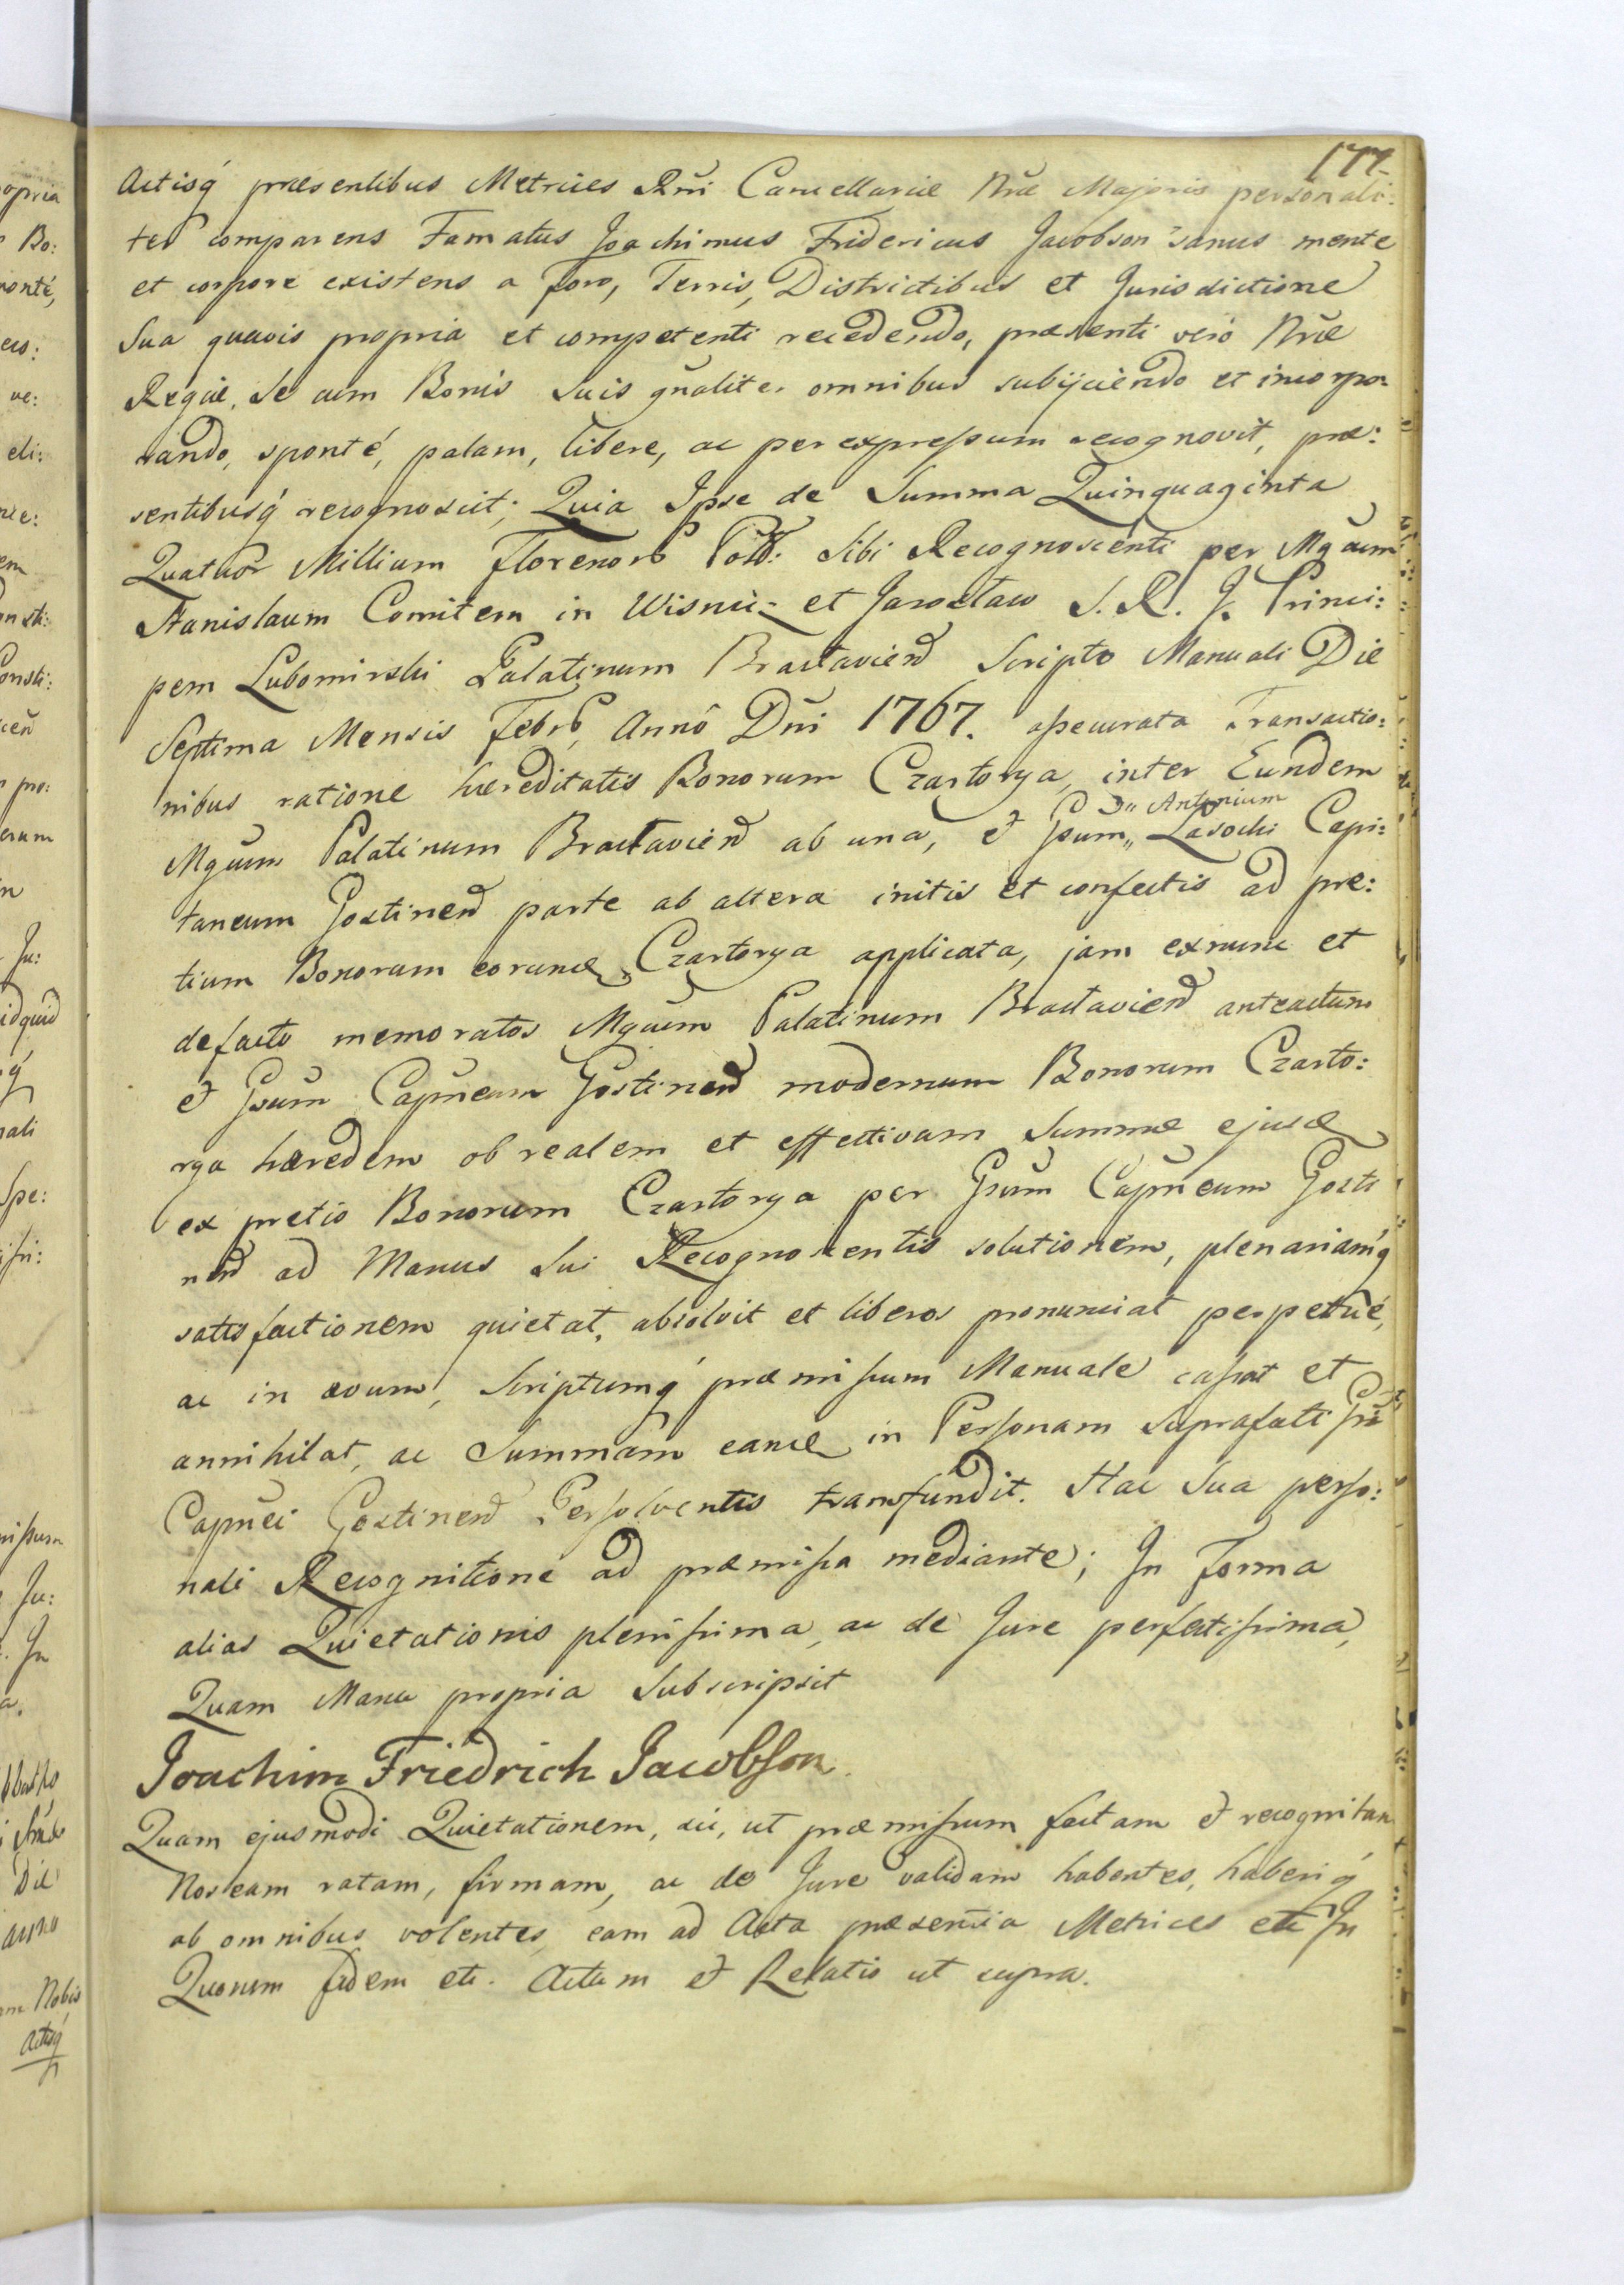 177.
Actisq́ præsentibus Metrices Rñi Cancellariæ Nræ Majoris personali:
ter comparens Famatus Joachimus Fridericus Jacobson sanus mente
et corpore existens a foro, Terris, Districtibus et Jurisdictione
Sua quavis propria et competenti recedendo, præsenti vero Nræ
Regiæ, se cum Bonis suis gñaliter omnibus subijciendo et incorpo:
rando, sponté, palam, libere, ac per expressum recognovit, præ:
sentibusq́ recognoscit; Quia Ipse de Summa Quinquaginta
Quatuor Millium florenorũ Poll: Sibi Recognoscenti per Mgcum
Stanislaum Comitem in Wisnicz et Jarosław S. R. J. Princi:
pem Lubomirski Palatinum Bracłavieñ Scripto Manuali Die
Septima Mensis Febrũ, Annô Dñi 1767. assecurata Transactio:
nibus ratione hæreditatis Bonorum Czartorya, inter Eundem
Mgcum Palatinum Bracłavieñ ab una, et Gsum „ Lasocki Capi:
„ Antonium
taneum Gostineñ parte ab altera initis et confectis ad pre:
tium Bonorum eorund Czartorya applicata, jam exnunc et
defacto memoratos Mgcum Palatinum Bracłavieñ anteactum
et Gsum Capneum Gostineñ modernum Bonorum Czarto:
rya hæredem ob realem et effectivam Summæ ejusd
ex pretio Bonorum Czartorya per Gsum Capneum Gosti
neñ ad Manus Sui Recognoscentis solutionem, plenariamq́
satisfactionem quietat, absolvit et liberos pronunciat perpetué,
ac in ævum, Scriptumq́ præmissum Manuale cassat et
annihilat, ac Summam eand in Personam Suprafati Gsi
Capnei Gostineñ Persolventis transfundit. Hac Sua perso:
nali Recognitione ad præmissa mediante; In Forma
alias Quietationis plenissima, ac de Jure perfectissima,
Quam Manu propria Subscripsit
Joachim Friedrich Jacobson.
Quam ejusmodi Quietationem, sic, ut præmissum factam et recognitam
Nos eam ratam, firmam, ac de Jure validam habentes, haberiq́
ab omnibus volentes, eam ad Acta præsentia Metrices etc In
Quorum fidem etc. Actum et Relatio ut supra.